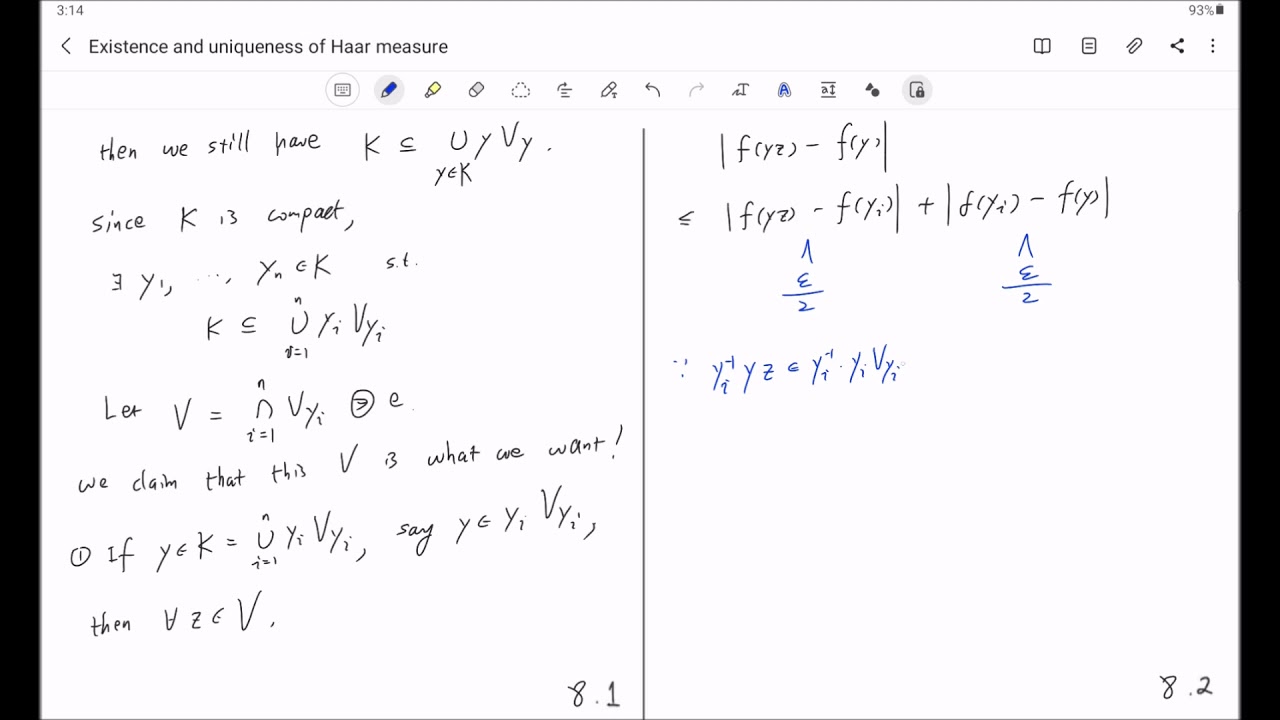 3:14
93%
Existence and uniqueness of Haar measure
then we still have K ⊆ ∪ y V_y .
y∈K
since K is compact,
∃ y_1, ..., y_n ∈ K s.t.
n
K ⊆ ∪ y_i V_{y_i}
i=1
n
Let V = ∩ V_{y_i} ∋ e
i=1
we claim that this V is what we want!
n
① If y∈K = ∪ y_i V_{y_i}, say y ∈ y_i V_{y_i},
i=1
then ∀ z ∈ V,
8.1
|f(yz) - f(y)|
≤ |f(yz) - f(y_i)| + |f(y_i) - f(y)|
∧ ∧
ε/2 ε/2
∵ y_i^{-1} y z ∈ y_i^{-1} · y_i V_{y_i}
8.2